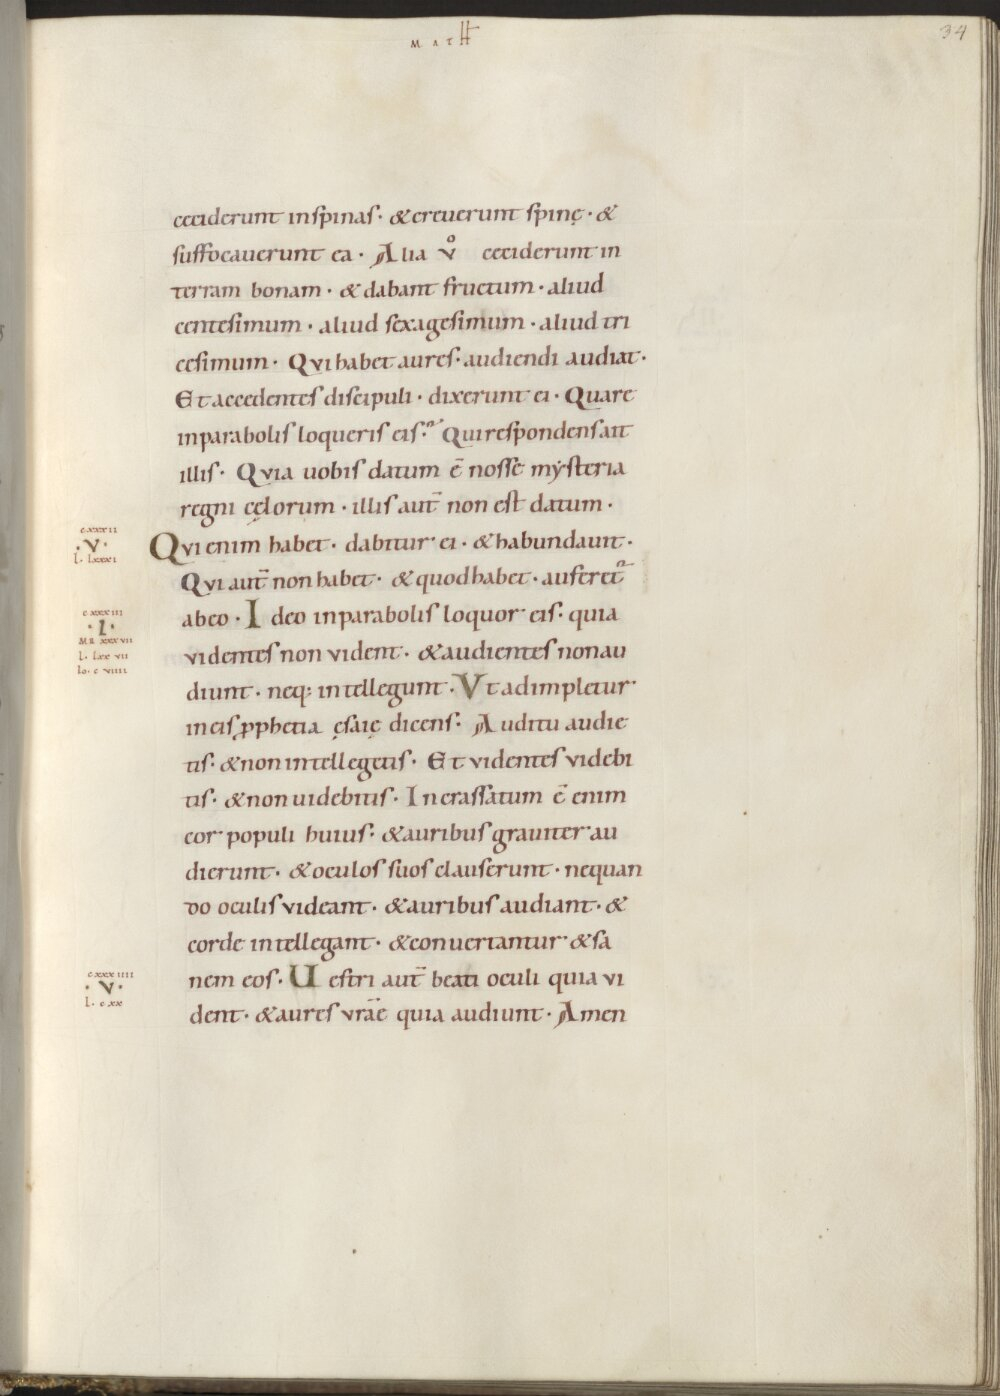 MATH
34
ceciderunt inspinas· &creuerunt spinę· &
suffocauerunt ea· Alia v̊ ceciderunt in
terram bonam· &dabant fructum· aliud
centesimum· aliud sexagesimum· aliud tri
cesimum· Qvi habet aures· audiendi audiat·
Et accedentes discipuli· dixerunt ei· Quare
inparabolis loqueris eis· Qui respondens ait
illis· Qvia uobis datum ē nosse mẏsteria
regni cęlorum· illis aut̄ non est datum·
cxxxii
·v·
l· lxxxi
Qvi enim habet· dabitur ei· &habundavit·
Qvi aut̄ non habet· &quod habet· auferet᷑
abeo· Ideo inparabolis loquor eis· quia
cxxxiii
·I·
MR xxxvii
l· lxxvii
Io· c viiii
videntes non vident· &audientes non au
diunt· neq; intellegunt· Vt adimpletur
in eis ꝓphetia ęsaię dicens· Auditu audie
tis· &non intellegetis· Et videntes videbi
tis· &non uidebitis· Incrassatum ē enim
cor populi huius· &auribus grauiter au
dierunt· &oculos suos clauserunt· nequan
do oculis videant· &auribus audiant· &
corde intellegant· &conuertantur &sa
nem eos· Uestri aut̄ beati oculi quia vi
cxxxiiii
·v·
l· cxx
dent· &aures vrāe quia audiunt· Amen